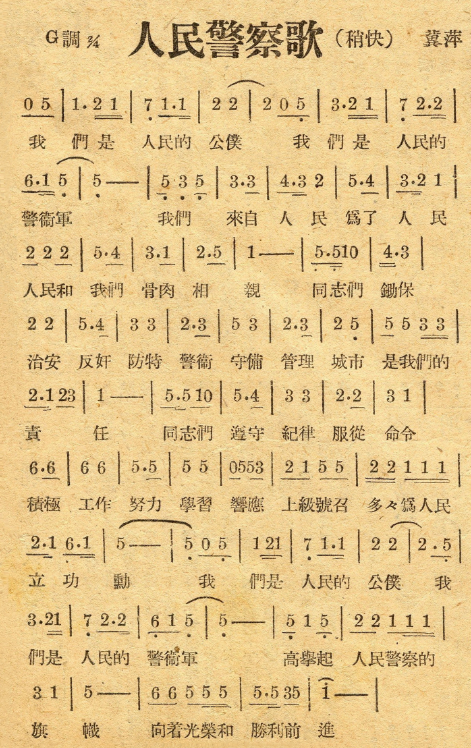 G調 2/4 人民警察歌 (稍快) 冀萍
0 5 | 1·2 1 | 7 1·1 | 2 2 | 2 0 5 | 3·2 1 | 7 2·2 |
我 們 是 人民的 公僕 我 們 是 人民的
6·1 5 | 5 — | 5 3 5 | 3·3 | 4·3 2 | 5·4 | 3·2 1 |
警衞軍 我們 來自 人 民 爲了 人 民
2 2 2 | 5·4 | 3·1 | 2·5 | 1 — | 5·510 | 4·3 |
人民和 我們 骨肉 相 親 同志們 鋤保
2 2 | 5·4 | 3 3 | 2·3 | 5 3 | 2·3 | 2 5 | 5 5 3 3 |
治安 反奸 防特 警衞 守備 管理 城市 是我們的
2·1 23 | 1 — | 5·5 10 | 5·4 | 3 3 | 2·2 | 3 1 |
責 任 同志們 遵守 紀律 服從 命令
6·6 | 6 6 | 5·5 | 5 5 | 0553 | 2 1 5 5 | 2 2 1 1 1 |
積極 工作 努力 學習 響應 上級號召 多々爲人民
2·1 6·1 | 5 — | 5 0 5 | 1 21 | 7 1·1 | 2 2 | 2·5 |
立 功 勳 我 們是 人民的 公僕 我
3·21 | 7 2·2 | 6 1 5 | 5 — | 5 1 5 | 2 2 1 1 1 |
們是 人民的 警衞軍 高擧起 人民警察的
3 1 | 5 — | 6 6 5 5 5 | 5·5 35 | 1 — |
旗 幟 向着光榮和 勝利前 進